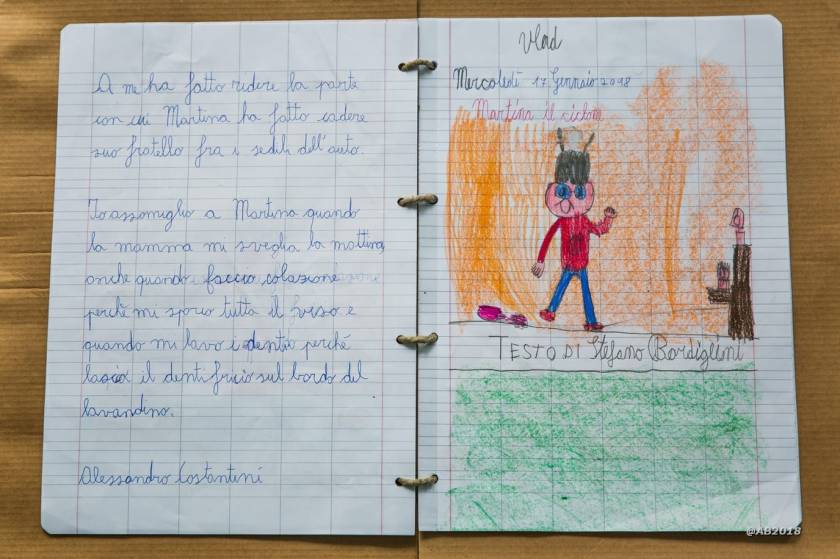 A me ha fatto ridere la parte
con cui Martina ha fatto cadere
suo fratello fra i sedili dell'auto.
Io assomiglio a Martina quando
la mamma mi sveglia la mattina,
anche quando faccio colazione
perchè mi sporco tutta il viso e
quando mi lavo i denti perchè
lascio il dentifricio sul bordo del
lavandino.
Alessandro Costantini
Vlad
Mercoledì 17 Gennaio 2018
Martina il ciclone
TESTO DI Stefano Bordiglioni
@AB2018